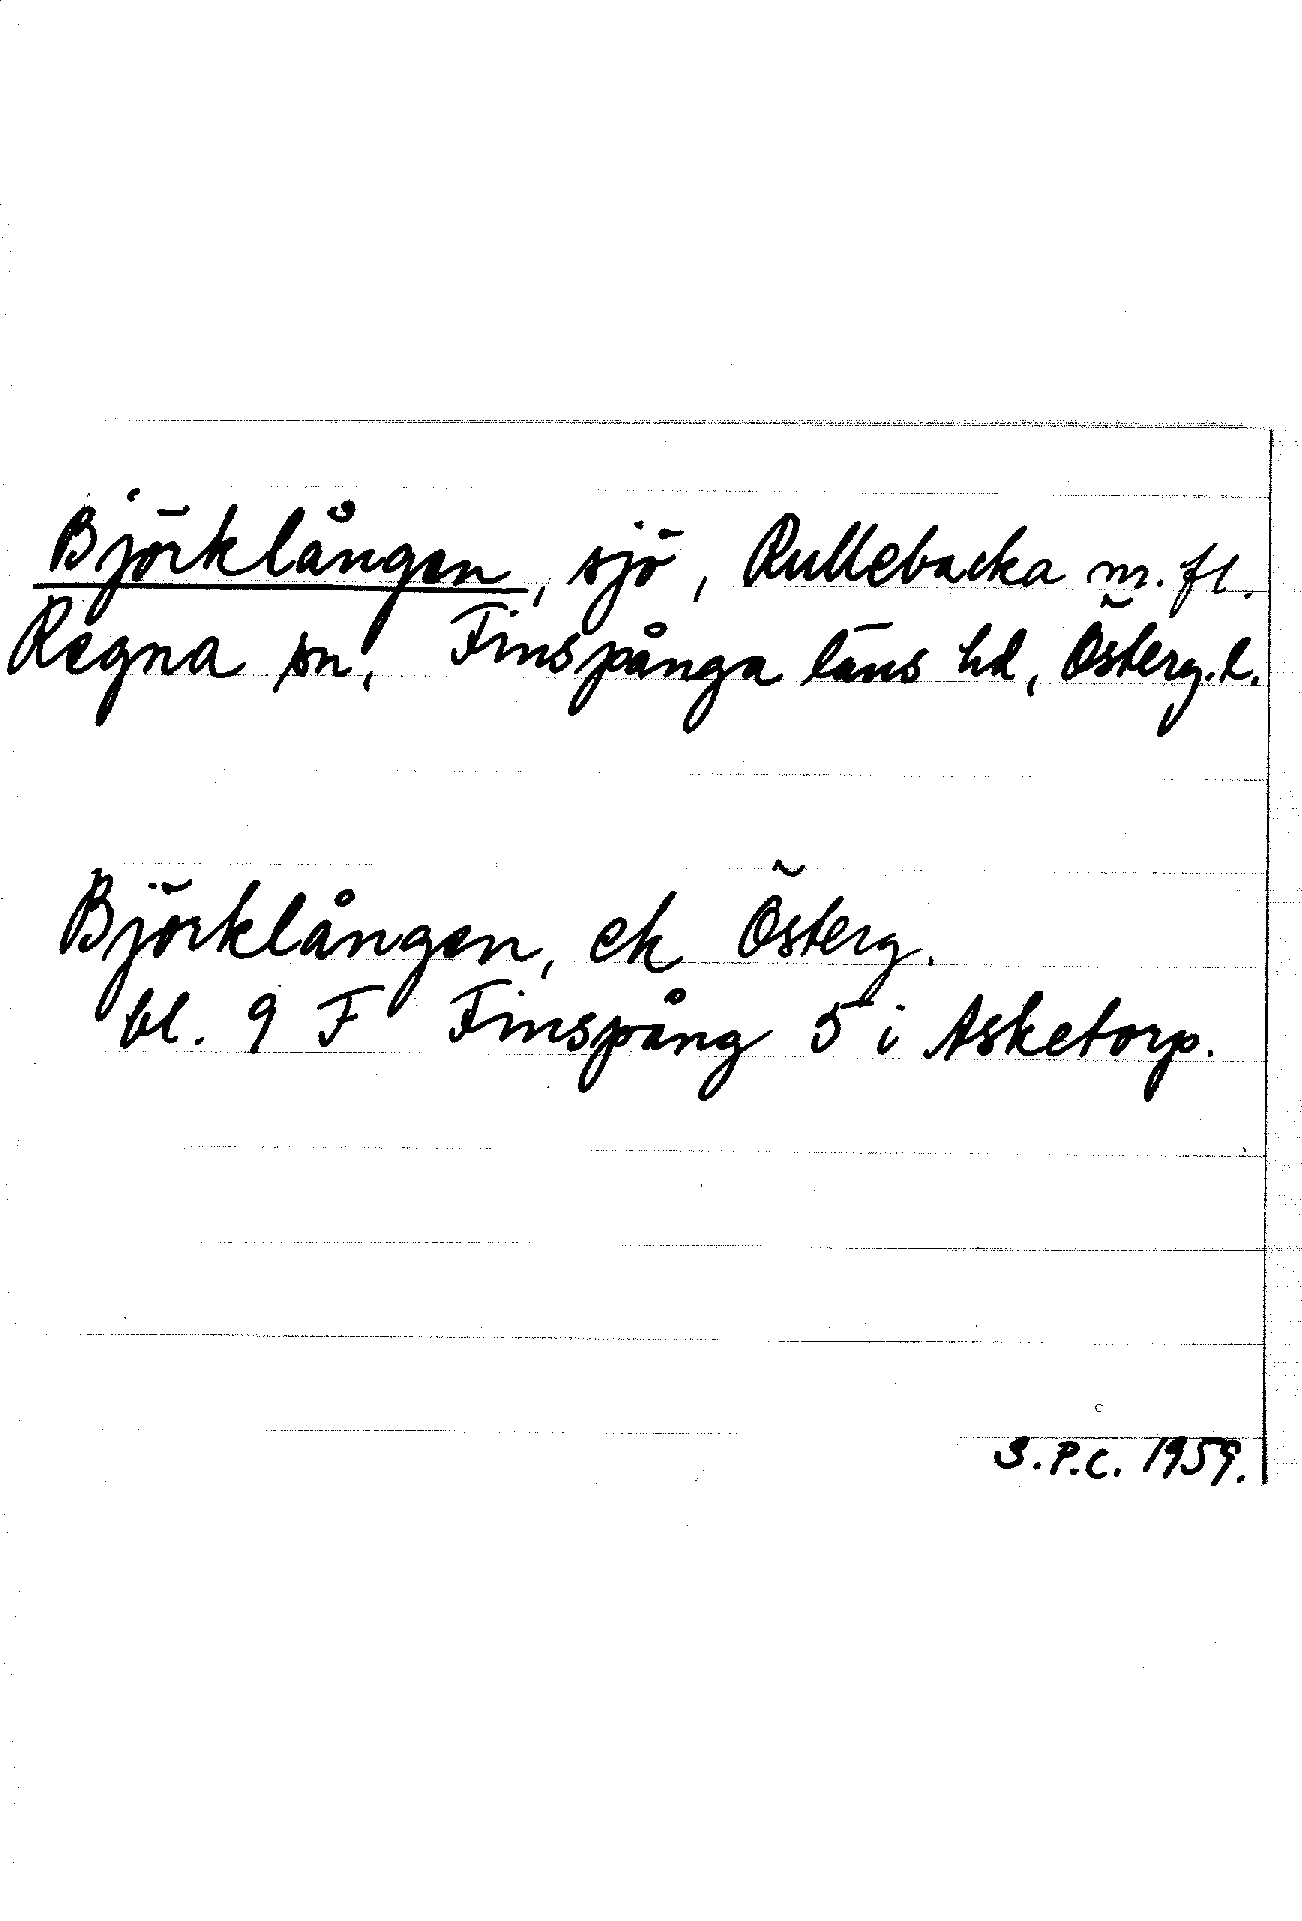 Björklången, sjö, Rullebacka m. fl.
Regna sn, Finspånga läns hd, Österg. l.
Björklången, ek Österg.
bl. 9 F Finspång 5 i Asketorp.
S.P.C. 1959.